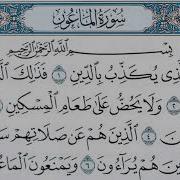 سُورَةُ المَاعُونِ
بِسْمِ اللَّهِ الرَّحْمَٰنِ الرَّحِيمِ
ذِى يُكَذِّبُ بِالدِّينِ ١ فَذَٰلِكَ
٢ وَلَا يَحُضُّ عَلَىٰ طَعَامِ الْمِسْكِينِ ٣
٤ الَّذِينَ هُمْ عَن صَلَاتِهِمْ
هُمْ يُرَاءُونَ ٦ وَيَمْنَعُونَ